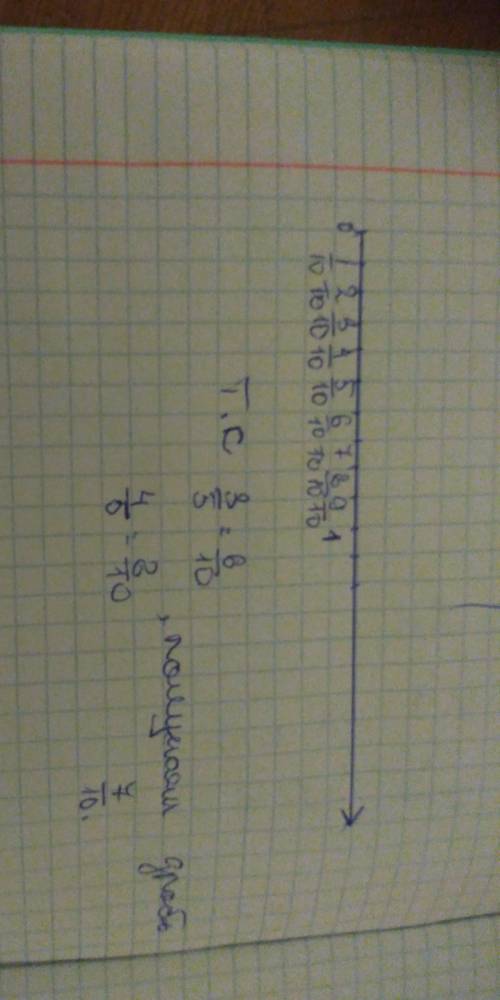 0 1/10 2/10 3/10 4/10 5/10 6/10 7/10 8/10 9/10 1
Т.С 3/5 = 6/10
4/5 = 8/10 , получаем дробь
7/10.